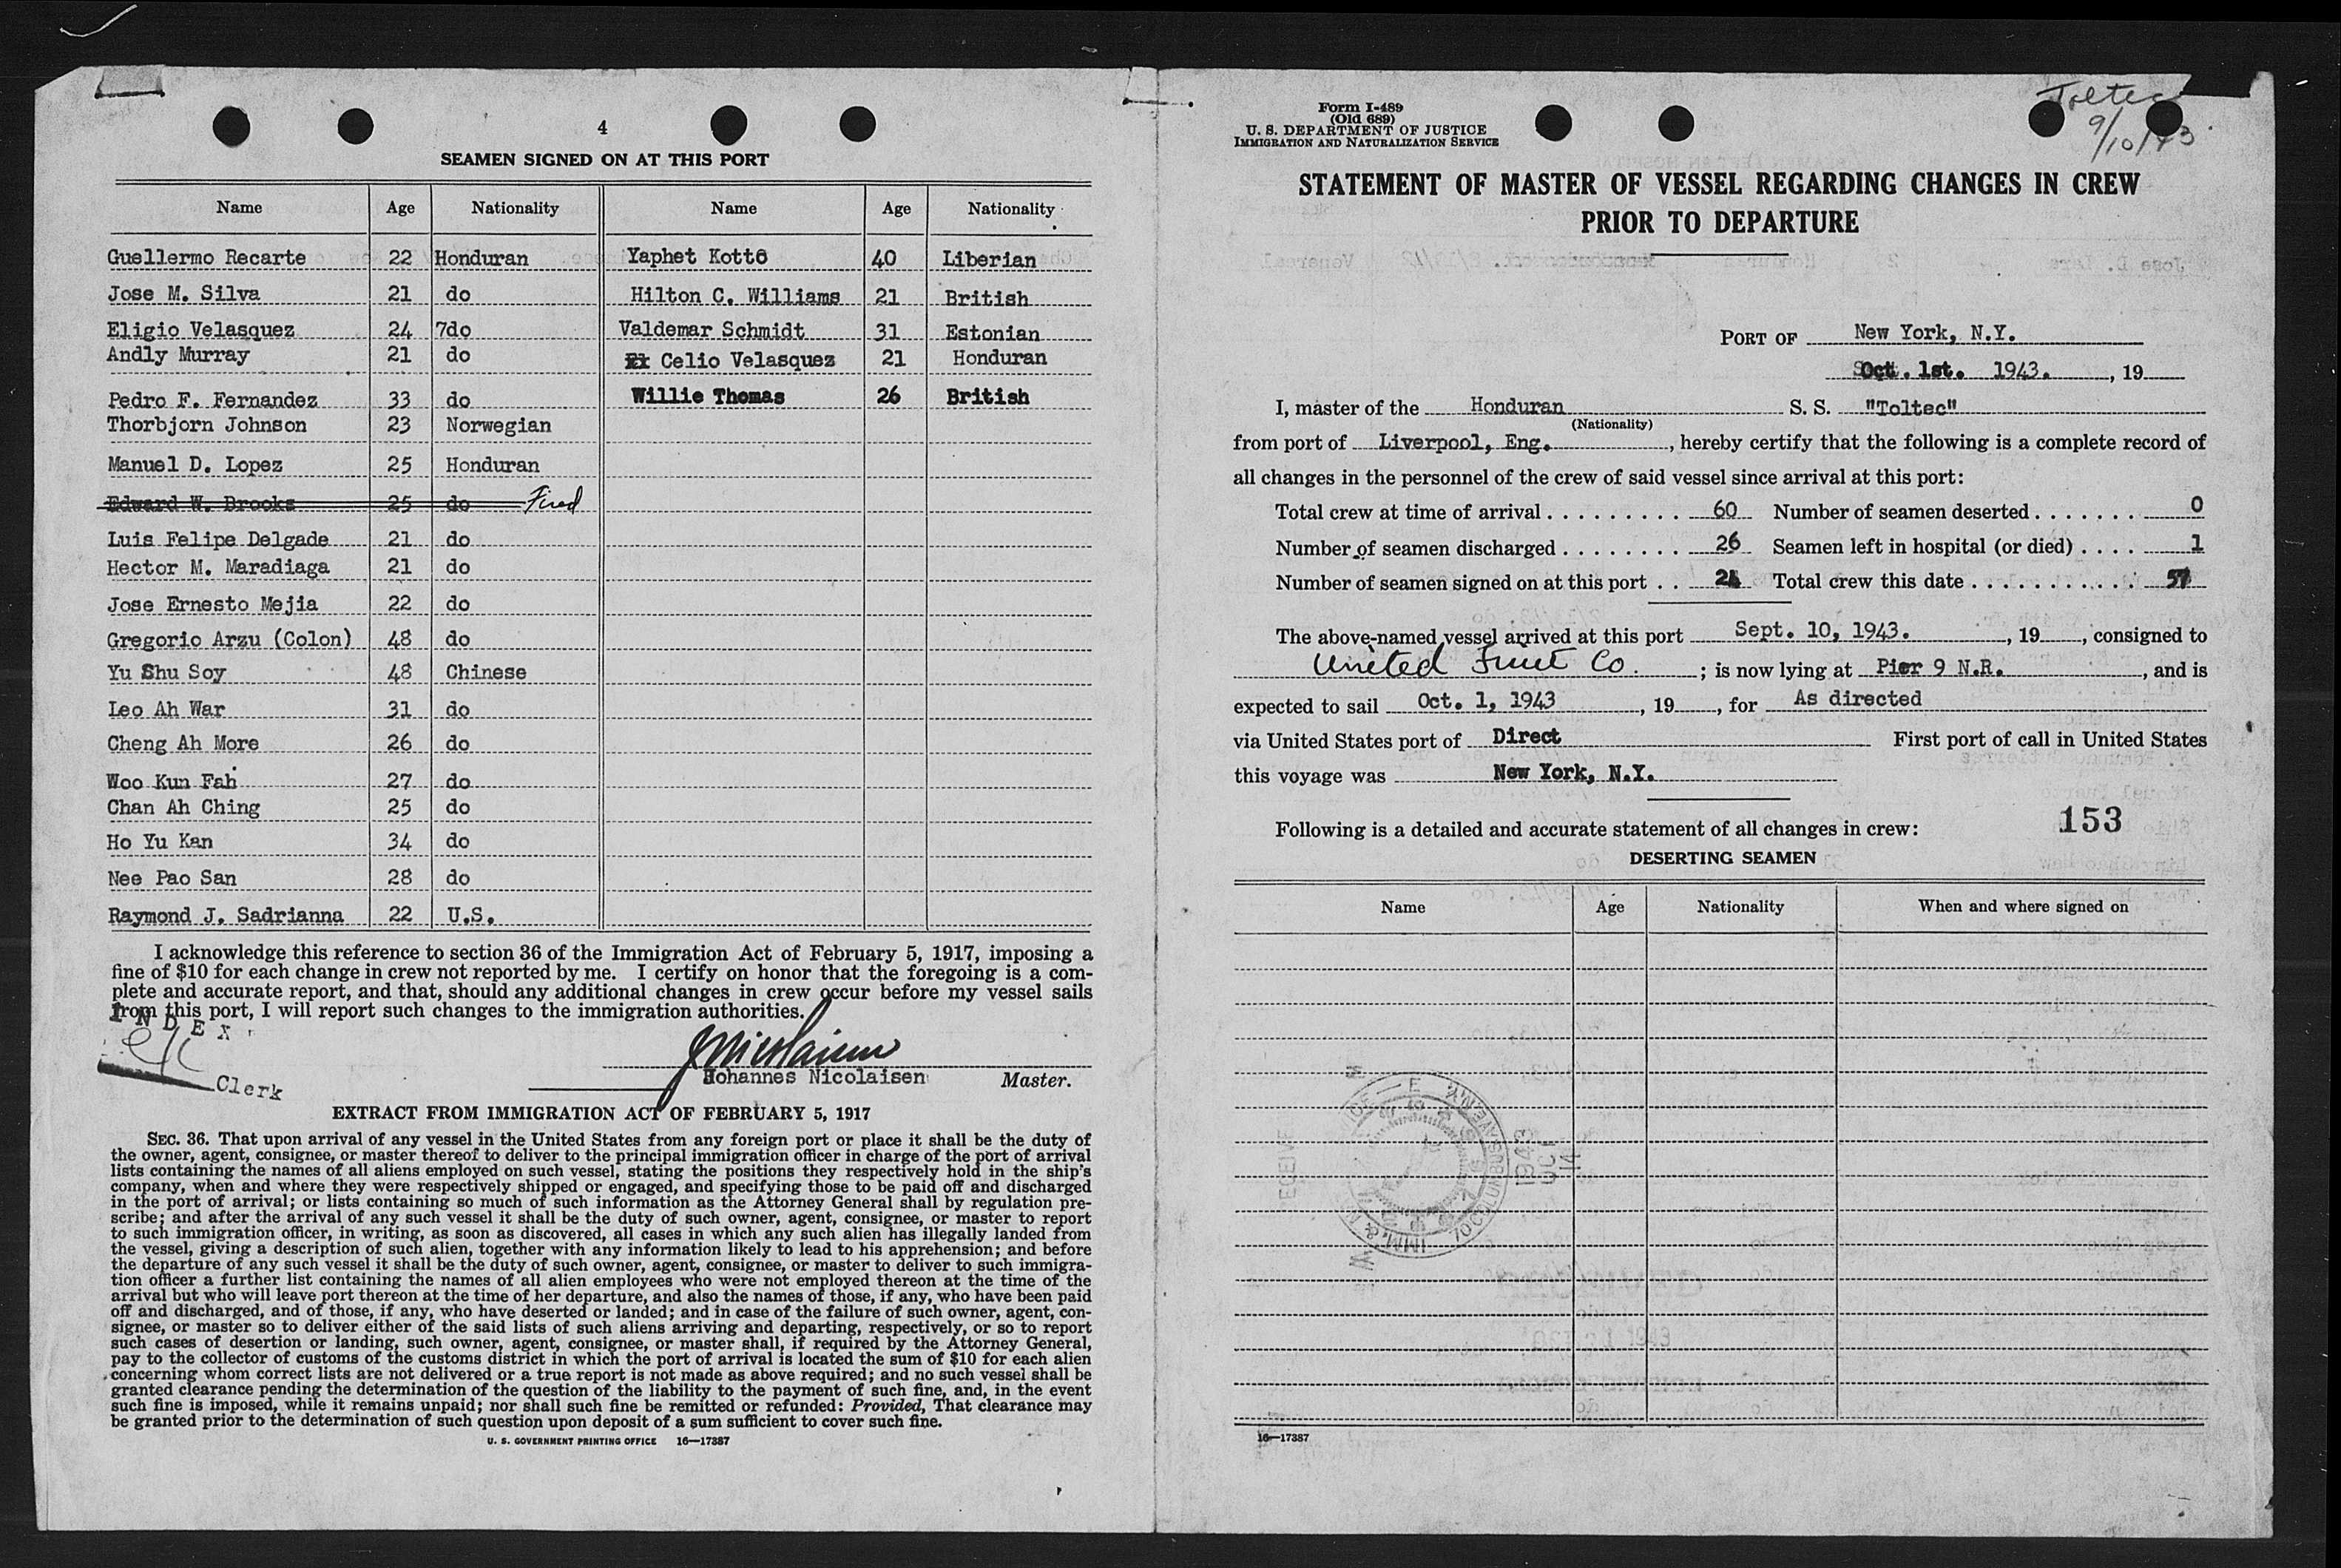 4
SEAMEN SIGNED ON AT THIS PORT
Name Age Nationality Name Age Nationality
Guellermo Recarte 22 Honduran Yaphet Kotto 40 Liberian
Jose M. Silva 21 do Hilton C. Williams 21 British
Eligio Velasquez 24 7do Valdemar Schmidt 31 Estonian
Andly Murray 21 do Celio Velasquez 21 Honduran
Pedro F. Fernandez 33 do Willie Thomas 26 British
Thorbjorn Johnson 23 Norwegian
Manuel D. Lopez 25 Honduran
Edward W. Brooks 25 do Fired
Luis Felipe Delgade 21 do
Hector M. Maradiaga 21 do
Jose Ernesto Mejia 22 do
Gregorio Arzu (Colon) 48 do
Yu Shu Soy 48 Chinese
Leo Ah War 31 do
Cheng Ah More 26 do
Woo Kun Fah 27 do
Chan Ah Ching 25 do
Ho Yu Kan 34 do
Nee Pao San 28 do
Raymond J. Sadrianna 22 U.S.
I acknowledge this reference to section 36 of the Immigration Act of February 5, 1917, imposing a
fine of $10 for each change in crew not reported by me. I certify on honor that the foregoing is a com-
plete and accurate report, and that, should any additional changes in crew occur before my vessel sails
from this port, I will report such changes to the immigration authorities.
INDEX
Clerk
Johannes Nicolaisen Master.
EXTRACT FROM IMMIGRATION ACT OF FEBRUARY 5, 1917
SEC. 36. That upon arrival of any vessel in the United States from any foreign port or place it shall be the duty of
the owner, agent, consignee, or master thereof to deliver to the principal immigration officer in charge of the port of arrival
lists containing the names of all aliens employed on such vessel, stating the positions they respectively hold in the ship's
company, when and where they were respectively shipped or engaged, and specifying those to be paid off and discharged
in the port of arrival; or lists containing so much of such information as the Attorney General shall by regulation pre-
scribe; and after the arrival of any such vessel it shall be the duty of such owner, agent, consignee, or master to report
to such immigration officer, in writing, as soon as discovered, all cases in which any such alien has illegally landed from
the vessel, giving a description of such alien, together with any information likely to lead to his apprehension; and before
the departure of any such vessel it shall be the duty of such owner, agent, consignee, or master to deliver to such immigra-
tion officer a further list containing the names of all alien employees who were not employed thereon at the time of the
arrival but who will leave port thereon at the time of her departure, and also the names of those, if any, who have been paid
off and discharged, and of those, if any, who have deserted or landed; and in case of the failure of such owner, agent, con-
signee, or master so to deliver either of the said lists of such aliens arriving and departing, respectively, or so to report
such cases of desertion or landing, such owner, agent, consignee, or master shall, if required by the Attorney General,
pay to the collector of customs of the customs district in which the port of arrival is located the sum of $10 for each alien
concerning whom correct lists are not delivered or a true report is not made as above required; and no such vessel shall be
granted clearance pending the determination of the question of the liability to the payment of such fine, and, in the event
such fine is imposed, while it remains unpaid; nor shall such fine be remitted or refunded: Provided, That clearance may
be granted prior to the determination of such question upon deposit of a sum sufficient to cover such fine.
U. S. GOVERNMENT PRINTING OFFICE 16—17387
Form I-489
(Old 689)
U. S. DEPARTMENT OF JUSTICE
IMMIGRATION AND NATURALIZATION SERVICE
Toltec
9/10/43
STATEMENT OF MASTER OF VESSEL REGARDING CHANGES IN CREW
PRIOR TO DEPARTURE
PORT OF New York, N.Y.
Oct. 1st. 1943. , 19
I, master of the Honduran S. S. "Toltec"
(Nationality)
from port of Liverpool, Eng. , hereby certify that the following is a complete record of
all changes in the personnel of the crew of said vessel since arrival at this port:
Total crew at time of arrival . . . . . . . . . 60 Number of seamen deserted . . . . . . . 0
Number of seamen discharged . . . . . . . . 26 Seamen left in hospital (or died) . . . . 1
Number of seamen signed on at this port . . 24 Total crew this date . . . . . . . . . . . 57
The above-named vessel arrived at this port Sept. 10, 1943. , 19 , consigned to
United Fruit Co. ; is now lying at Pier 9 N.R. , and is
expected to sail Oct. 1, 1943 , 19 , for As directed
via United States port of Direct First port of call in United States
this voyage was New York, N.Y.
153
Following is a detailed and accurate statement of all changes in crew:
DESERTING SEAMEN
Name Age Nationality When and where signed on
1943 OCT
70 COLUMBUS AVE. N.Y.
16—17387